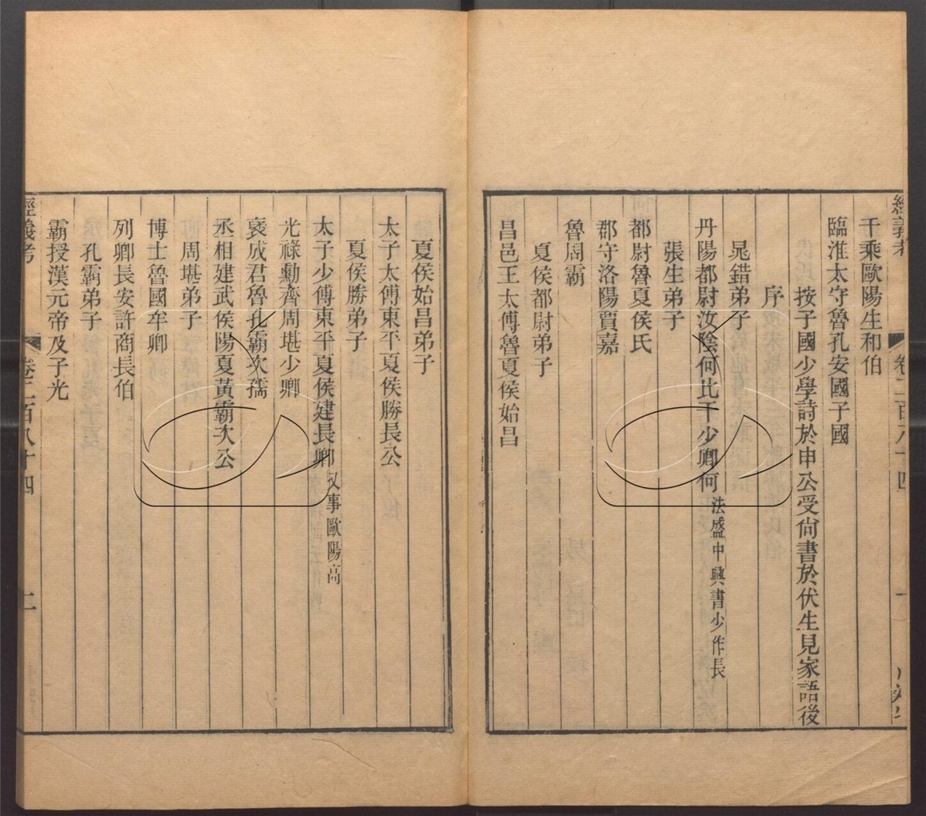 經義考
卷二百八十四
一
千乘歐陽生和伯
臨淮太守魯孔安國子國
按子國少學詩於申公受尙書於伏生見家語後
序
晁錯弟子
丹陽都尉汝陰何比干少卿何法盛中興書少作長
張生弟子
都尉魯夏侯氏
郡守洛陽賈嘉
魯周霸
夏侯都尉弟子
昌邑王太傅魯夏侯始昌
夏侯始昌弟子
太子太傅東平夏侯勝長公
夏侯勝弟子
太子少傅東平夏侯建長卿又事歐陽高
光祿勳齊周堪少卿
襃成君魯孔霸次孺
丞相建武侯陽夏黃霸次公
周堪弟子
博士魯國牟卿
列卿長安許商長伯
孔霸弟子
霸授漢元帝及子光
經義考
卷二百八十四
二